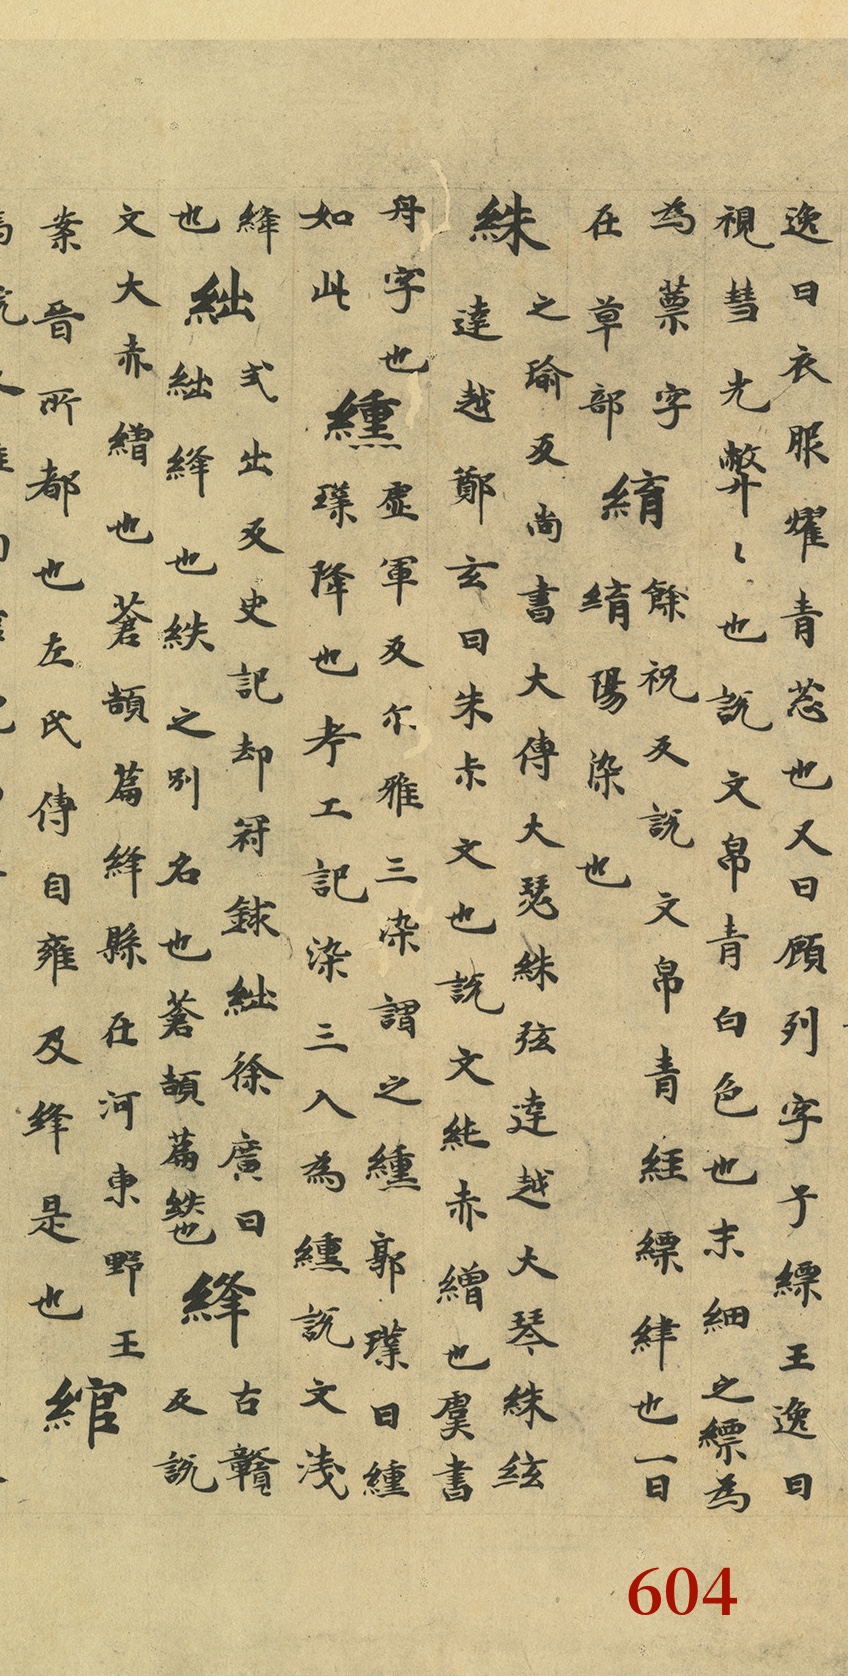 逸曰衣服燿青葱也又曰顧列孛于縹王逸曰
視彗光弊〻也說文帛青白色也末細之縹為
為蔈字
在草部
餘祝反說文帛青經縹緯也一曰
陽染也
絑
之瑜反尚書大傳大瑟絑弦達越大琴絑絃
達越鄭玄曰朱文也說文純赤繒也虞書
丹字也
如此
纁
虛軍反尒雅三染謂之纁郭璞曰纁
璞降也考工記染三入為纁說文淺
絳
也
絀
式出反史記却冠鉥絀徐廣曰
絀絳也紩之別名也蒼頡篇紩也
絳
古贛
反說
文大赤繒也蒼頡篇絳縣在河東野王
案晉所都也左氏傳自雍及絳是也
綰
604